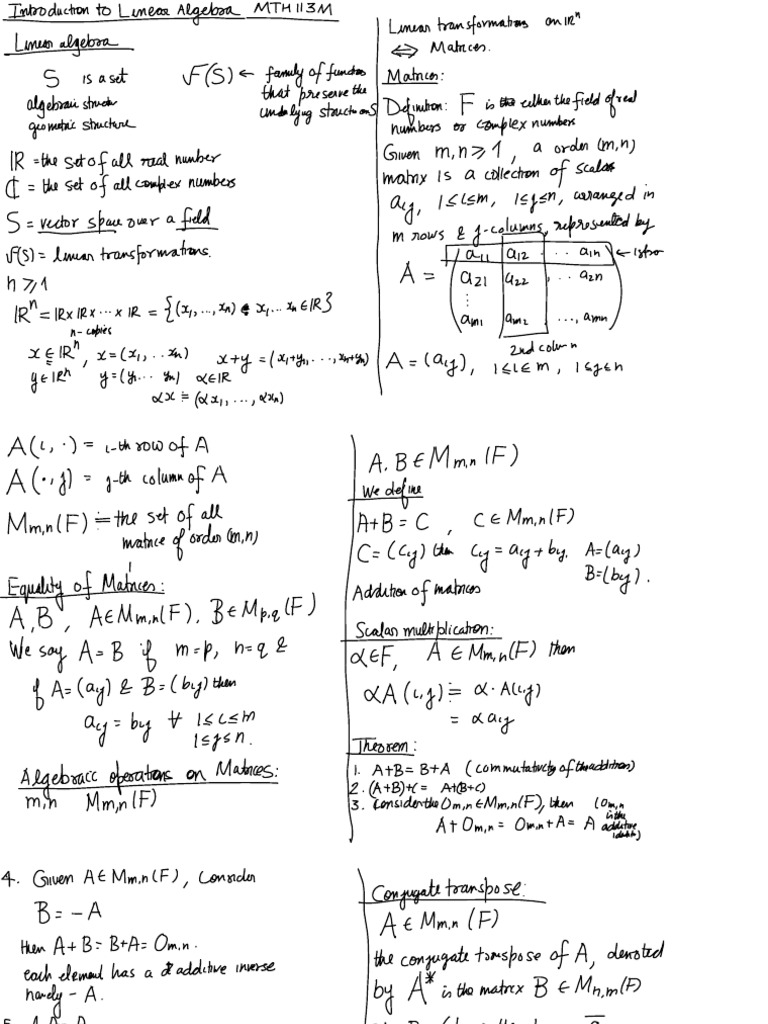 Introduction to Linear Algebra MTH113M
Linear algebra
S is a set
algebraic structure
geometric structure
F(S) ← family of functions
that preserve the
underlying structions
ℝ = the set of all real number
ℂ = the set of all complex numbers
S = vector space over a field
F(S) = linear transformations.
n ≥ 1
ℝⁿ = ℝ × ℝ × ... × ℝ = {(x₁, ..., xₙ) • x₁ ... xₙ ∈ ℝ}
n-copies
x ∈ ℝⁿ, x = (x₁, .. xₙ) x+y = (x₁+y₁, ..., xₙ+yₙ)
y ∈ ℝⁿ y = (y₁ ... yₙ) α ∈ ℝ
αx = (αx₁, ..., αxₙ)
Linear transformations on ℝⁿ
⇔ Matrices.
Matrices:
Definition: F is the either the field of real
numbers or complex numbers
Given m,n ≥ 1, a order (m,n)
matrix is a collection of scalars
aᵢⱼ, 1≤i≤m, 1≤j≤n, arranged in
m rows & j-columns, represented by
A = ( a₁₁ a₁₂ ... a₁ₙ ← 1st row
a₂₁ a₂₂ ... a₂ₙ
⋮
aₘ₁ aₘ₂ ..., aₘₙ )
2nd column
A = (aᵢⱼ), 1≤i≤m, 1≤j≤n
A(i, ·) = i-th row of A
A(·, j) = j-th column of A
Mₘ,ₙ(F) := the set of all
matrice of order (m,n)
Equality of Matrices:
A, B, A ∈ Mₘ,ₙ(F), B ∈ M_{p,q}(F)
We say A = B if m=p, n=q &
if A = (aᵢⱼ) & B = (bᵢⱼ) then
aᵢⱼ = bᵢⱼ ∀ 1≤i≤m
1≤j≤n.
Algebraic operations on Matrices:
m,n Mₘ,ₙ(F)
A, B ∈ Mₘ,ₙ(F)
We define
A+B = C, C ∈ Mₘ,ₙ(F)
C = (cᵢⱼ) then cᵢⱼ = aᵢⱼ + bᵢⱼ. A=(aᵢⱼ)
B=(bᵢⱼ).
Addition of matrices
Scalar multiplication:
α ∈ F, A ∈ Mₘ,ₙ(F) then
αA(i,j) := α·A(i,j)
= αaᵢⱼ
Theorem:
1. A+B = B+A (commutativity of the addition)
2. (A+B)+C = A+(B+C)
3. Consider the Oₘ,ₙ ∈ Mₘ,ₙ(F), then (Oₘ,ₙ
is the
A + Oₘ,ₙ = Oₘ,ₙ + A = A additive
identity)
4. Given A ∈ Mₘ,ₙ(F), consider
B = -A
then A+B = B+A = Oₘ,ₙ.
each element has a additive inverse
namely -A.
Conjugate transpose:
A ∈ Mₘ,ₙ(F)
the conjugate transpose of A, denoted
by A* is the matrix B ∈ Mₙ,ₘ(F)